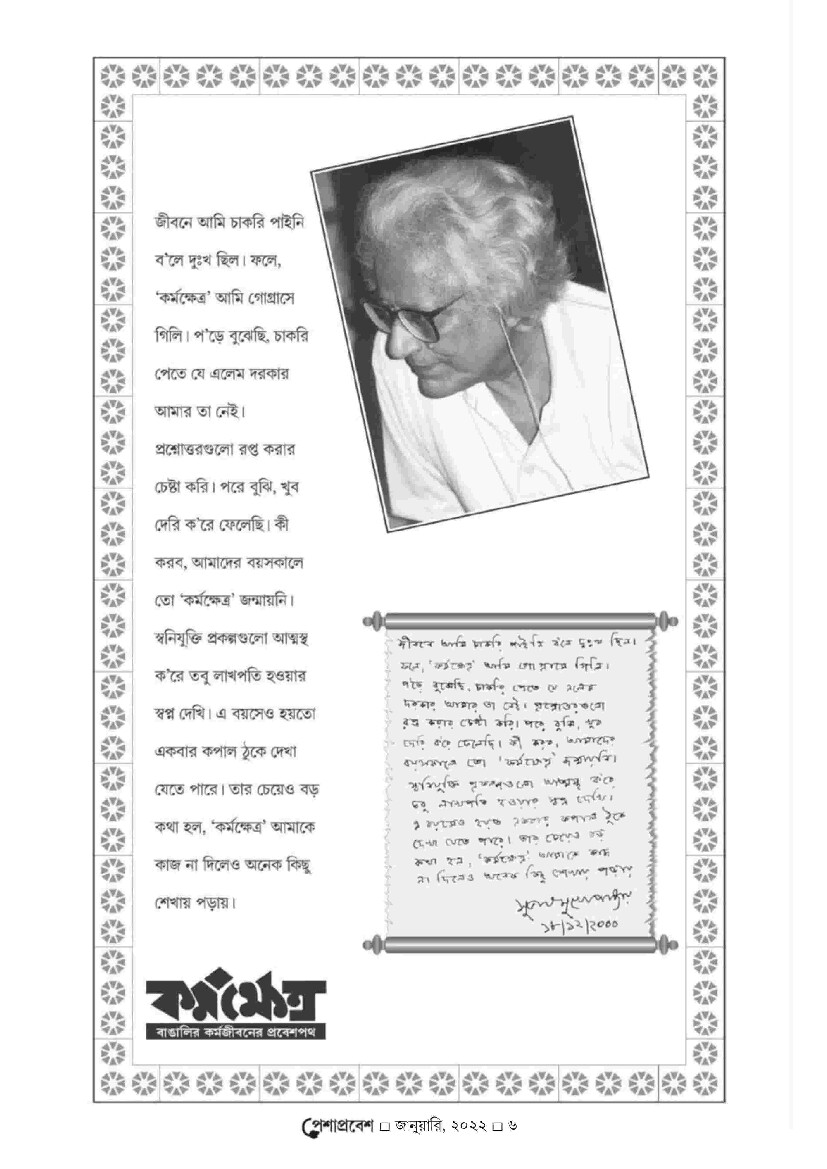 জীবনে আমি চাকরি পাইনি
ব'লে দুঃখ ছিল। ফলে,
'কর্মক্ষেত্র' আমি গোগ্রাসে
গিলি। প'ড়ে বুঝেছি, চাকরি
পেতে যে এলেম দরকার
আমার তা নেই।
প্রশ্নোত্তরগুলো রপ্ত করার
চেষ্টা করি। পরে বুঝি, খুব
দেরি ক'রে ফেলেছি। কী
করব, আমাদের বয়সকালে
তো 'কর্মক্ষেত্র' জন্মায়নি।
স্বনিযুক্তি প্রকল্পগুলো আত্মস্থ
ক'রে তবু লাখপতি হওয়ার
স্বপ্ন দেখি। এ বয়সেও হয়তো
একবার কপাল ঠুকে দেখা
যেতে পারে। তার চেয়েও বড়
কথা হল, 'কর্মক্ষেত্র' আমাকে
কাজ না দিলেও অনেক কিছু
শেখায় পড়ায়।
জীবনে আমি চাকরি পাইনি ব'লে দুঃখ ছিল।
ফলে, 'কর্মক্ষেত্র' আমি গোগ্রাসে গিলি।
প'ড়ে বুঝেছি, চাকরি পেতে যে এলেম
দরকার আমার তা নেই। প্রশ্নোত্তরগুলো
রপ্ত করার চেষ্টা করি। পরে বুঝি, খুব
দেরি ক'রে ফেলেছি। কী করব, আমাদের
বয়সকালে তো 'কর্মক্ষেত্র' জন্মায়নি।
স্বনিযুক্তি প্রকল্পগুলো আত্মস্থ ক'রে
তবু লাখপতি হওয়ার স্বপ্ন দেখি।
এ বয়সেও হয়ত একবার কপাল ঠুকে
দেখা যেতে পারে। তার চেয়েও বড়
কথা হল, 'কর্মক্ষেত্র' আমাকে কাজ
না দিলেও অনেক কিছু শেখায় পড়ায়
সুভাষ মুখোপাধ্যায়
১৮/১২/২০০০
কর্মক্ষেত্র
বাঙালির কর্মজীবনের প্রবেশপথ
পেশাপ্রবেশ □ জানুয়ারি, ২০২২ □ ৬